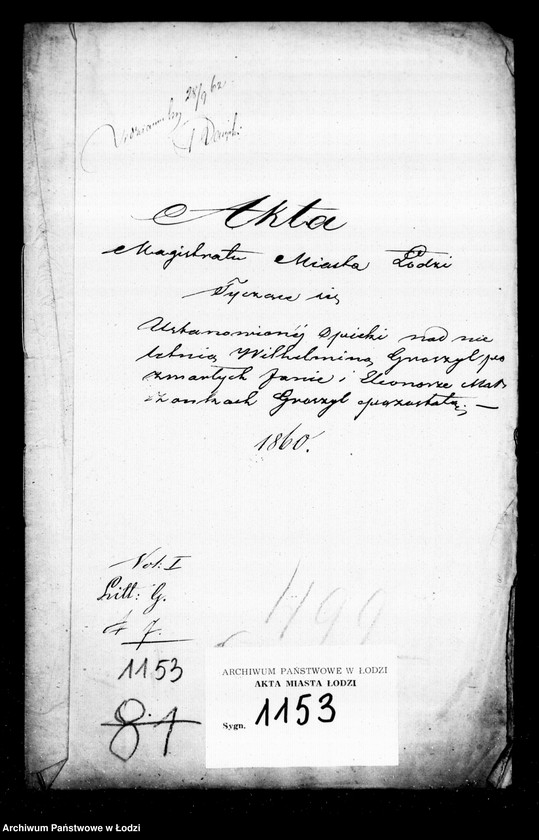 28/9 62
Akta
Magistratu Miasta Łodzi
Tyczące się
Ustanowionéj Opieki nad nie
letnią Wilhelminą Groszyl po
zmarłych Janie i Eleonorze Mał
żonkach Groszyl pozostałą. —
1860.
Vol: I
Litt: G.
# 7.
1153
81
1499
ARCHIWUM PAŃSTWOWE W ŁODZI
AKTA MIASTA ŁODZI
Sygn. 1153
Archiwum Państwowe w Łodzi